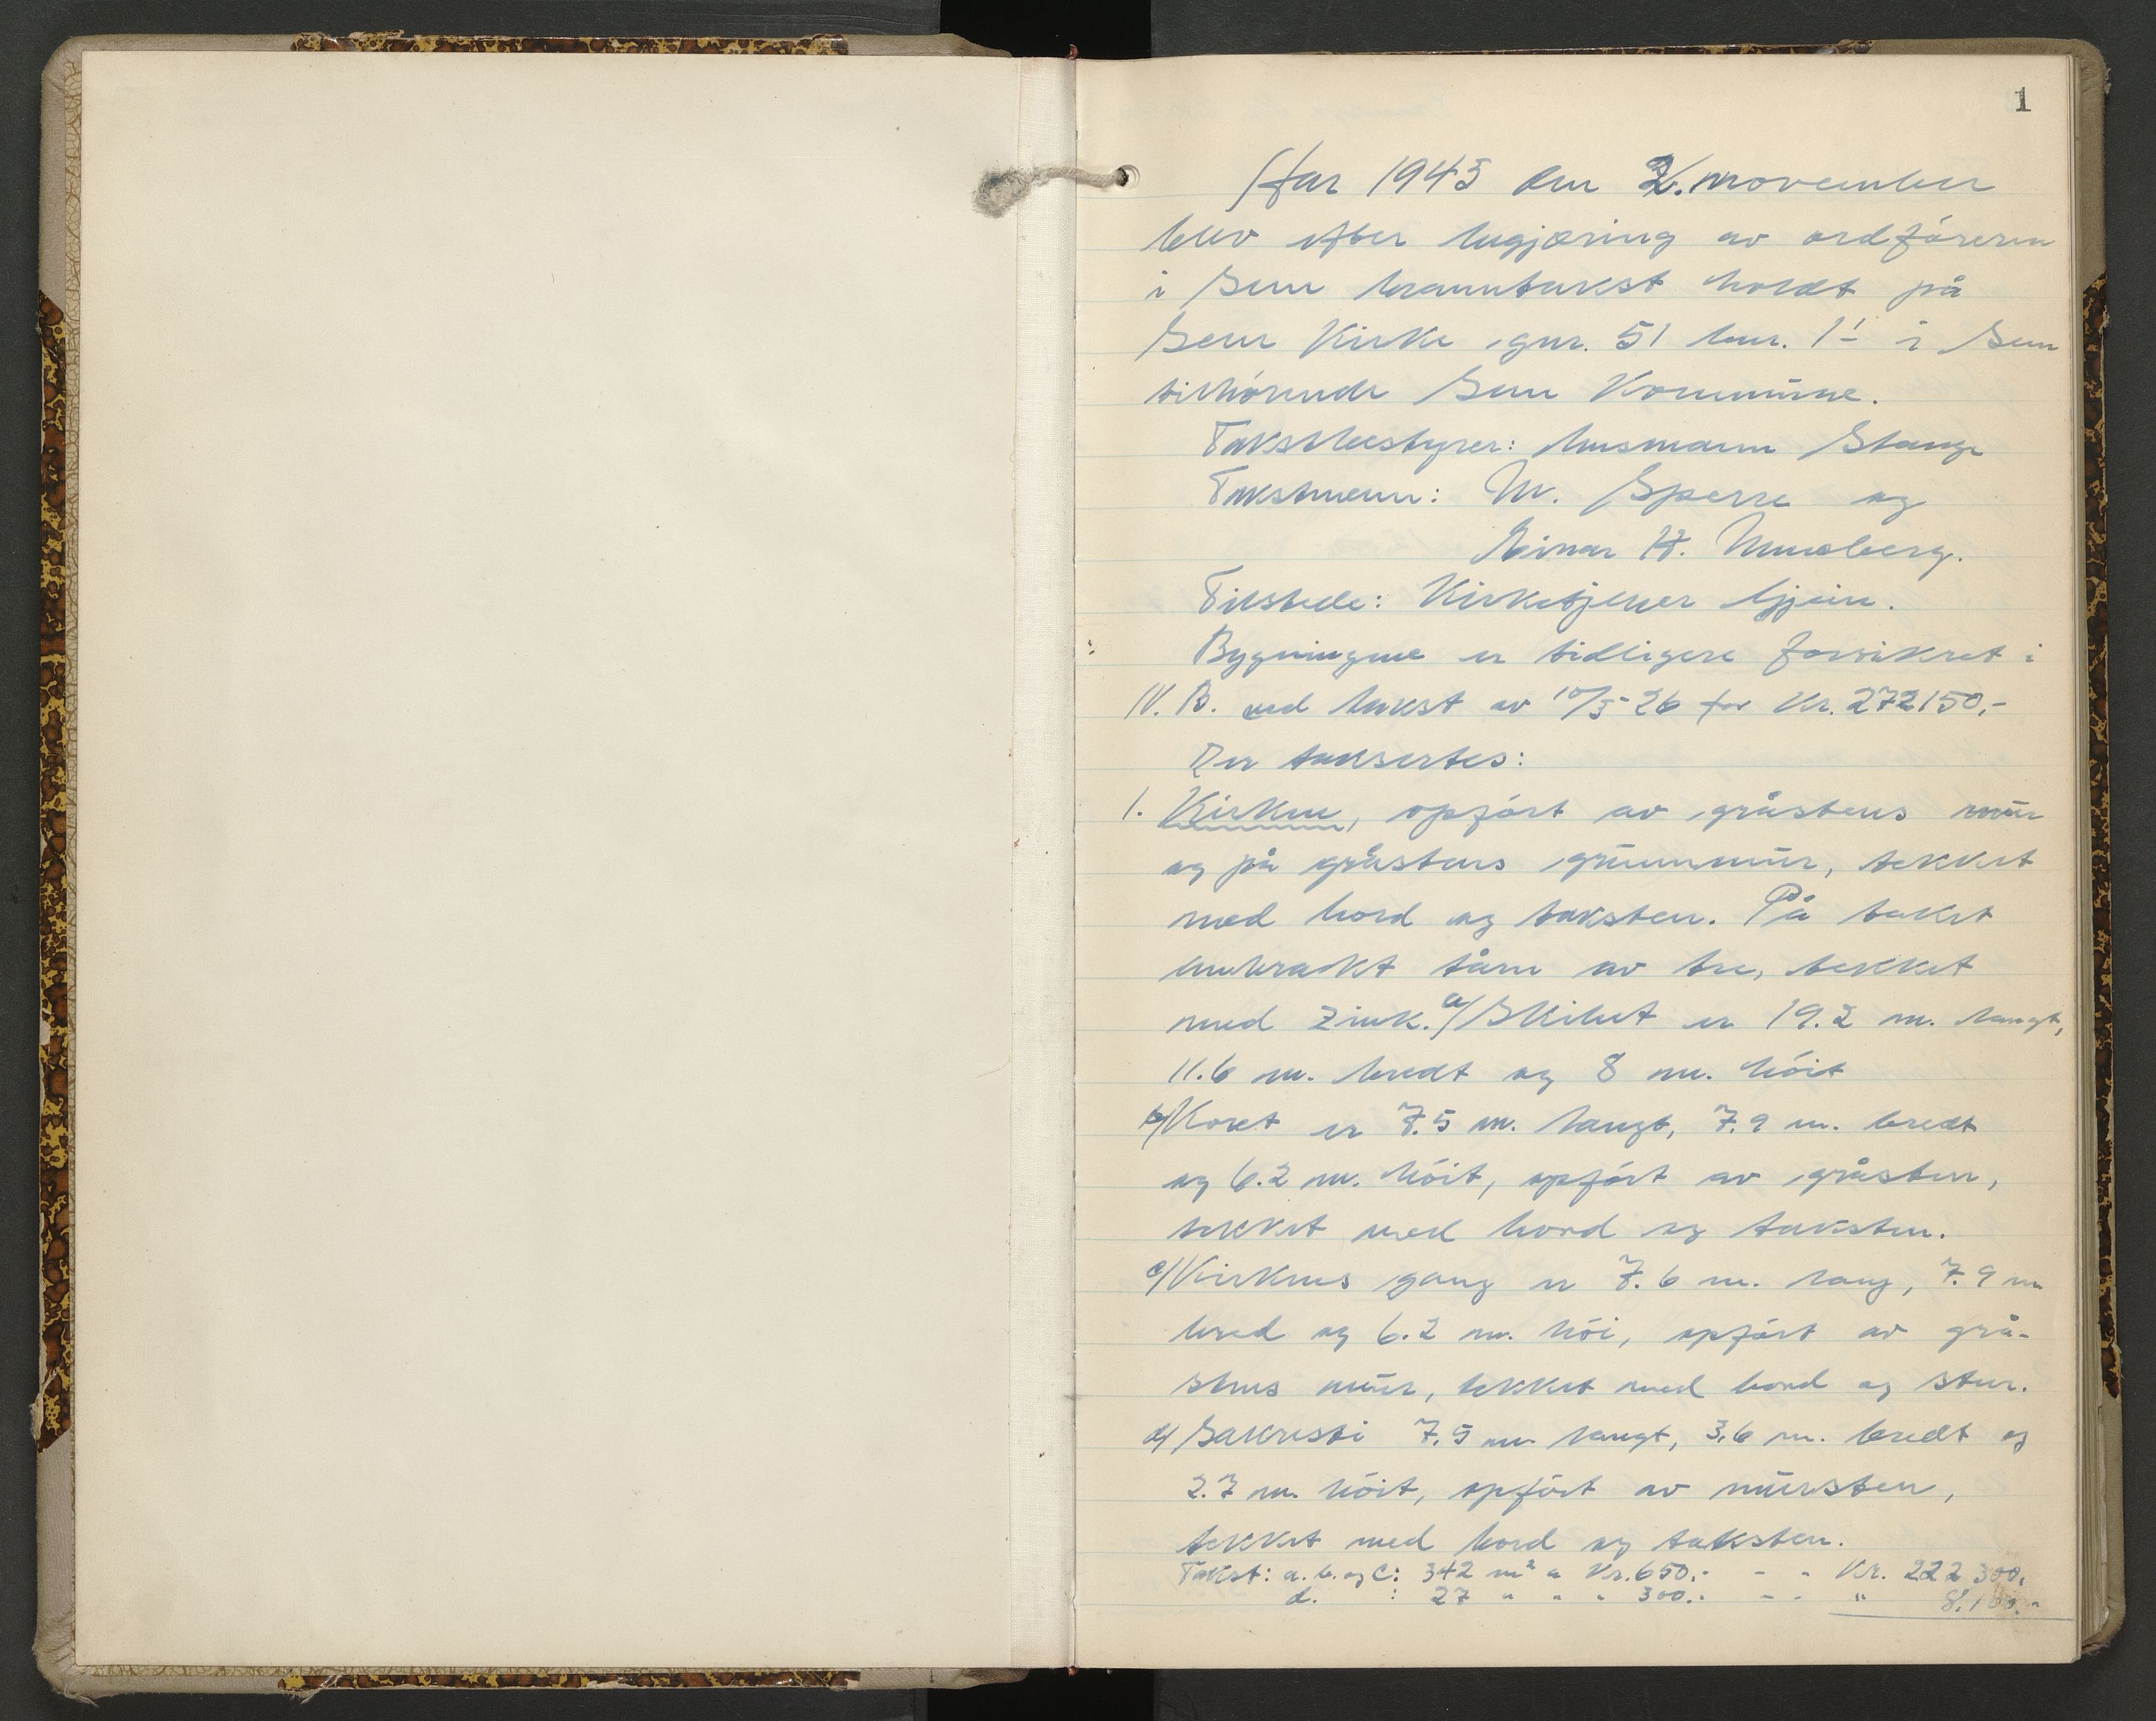 1
År 1943 den 2. november
blev efter begjæring av ordføreren
i Sem branntakst holdt på
Sem Kirke, gnr. 51 bnr. 1 i Sem
tilhörende Sem Kommune.
Takstbestyrer: lensmann Stange
Takstmenn: M. Sperre og
Einar H. Mundberg.
Tilstede: Kirketjener Gjein.
Bygningene er tidligere forsikret i
N. B. ved takst av 10/5-26 for Kr. 272150,-
Der taksertes:
1. Kirken, opfört av gråstens mur
og på gråstens grunnmur, tekket
med bord og taksten. På taket
anbrakt tårn av tre, tekket
med zink. a/ Skibet er 19.2 m. langt,
11.6 m. bredt og 8 m. höit
b/ Koret er 7.5 m. langt, 7.9 m. bredt
og 6.2 m. höit, opfört av gråsten,
tekket med bord og taksten.
c/ Kirkens gang er 7.6 m. lang, 7.9 m
bred og 6.2 m. höi, opfört av grå-
stens mur, tekket med bord og sten.
d/ Sakristi 7,5 m. langt, 3,6 m. bredt og
2.7 m. höit, opfört av mursten,
tekket med bord og taksten.
Takst: a. b. og c: 342 m² a Kr. 650.- - - Kr. 222 300,
d. : 27 " " " 300.- - - " 8.100.-